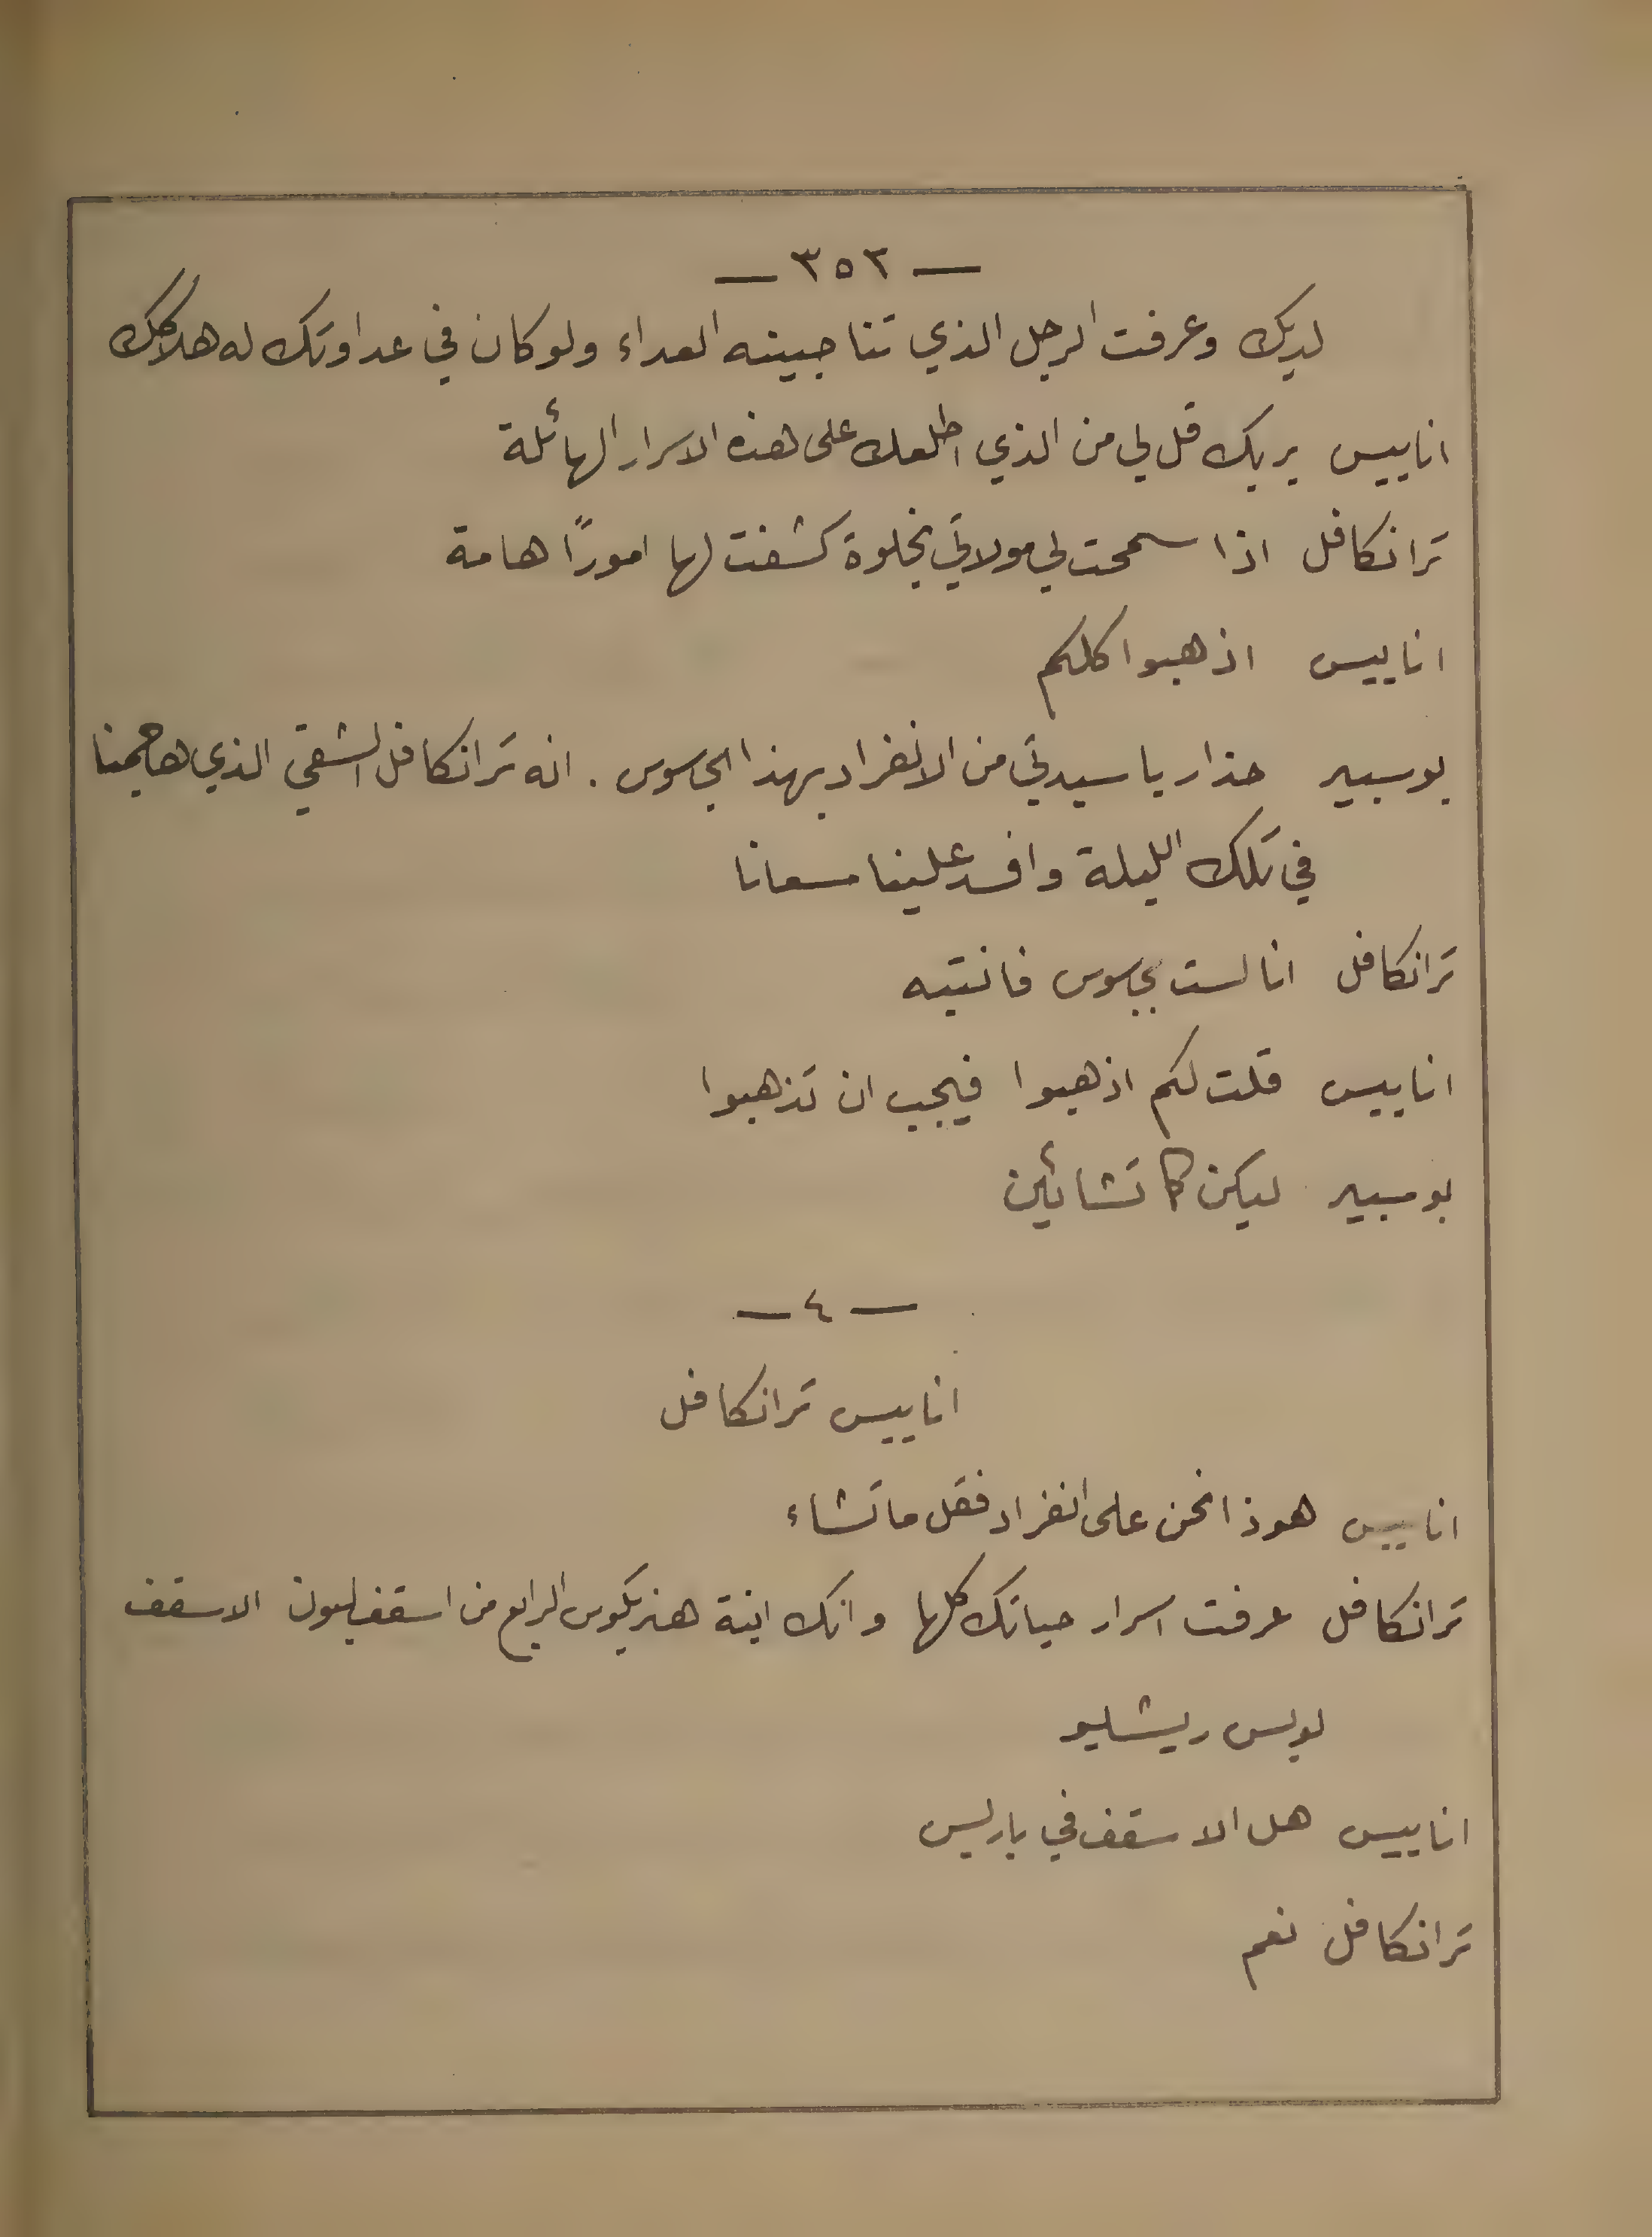 — ٣٥٢ —
لديك وعرفت الرجل الذي تناجبينه العداء ولو كان في عداوتك له هلاكك
اناييس بربك قل لي من الذي اطلعك على هذه الاسرار الهائلة
ترانكافل اذا سمحت لي مولاتي بخلوة كشفت لها امورًا هامة
اناييس اذهبوا كلكم
بوسبير حذار يا سيدتي من الانفراد بهذا الجاسوس . انه ترانكافل الشقي الذي هاجمنا
في تلك الليلة وافسد علينا مسعانا
ترانكافل انا لست بجاسوس فانتبه
اناييس قلت لكم اذهبوا فيجب ان تذهبوا
بوسبير ليكن كما تشائين
— ٤ —
اناييس ترانكافل
اناييس هوذا نحن على انفراد فقل ما تشاء
ترانكافل عرفت اسرار حياتك كلها وانك ابنة هنريكوس الرابع من اسقف ليون الاسقف
لويس ريشليو
اناييس هل الاسقف في باريس
ترانكافل نعم